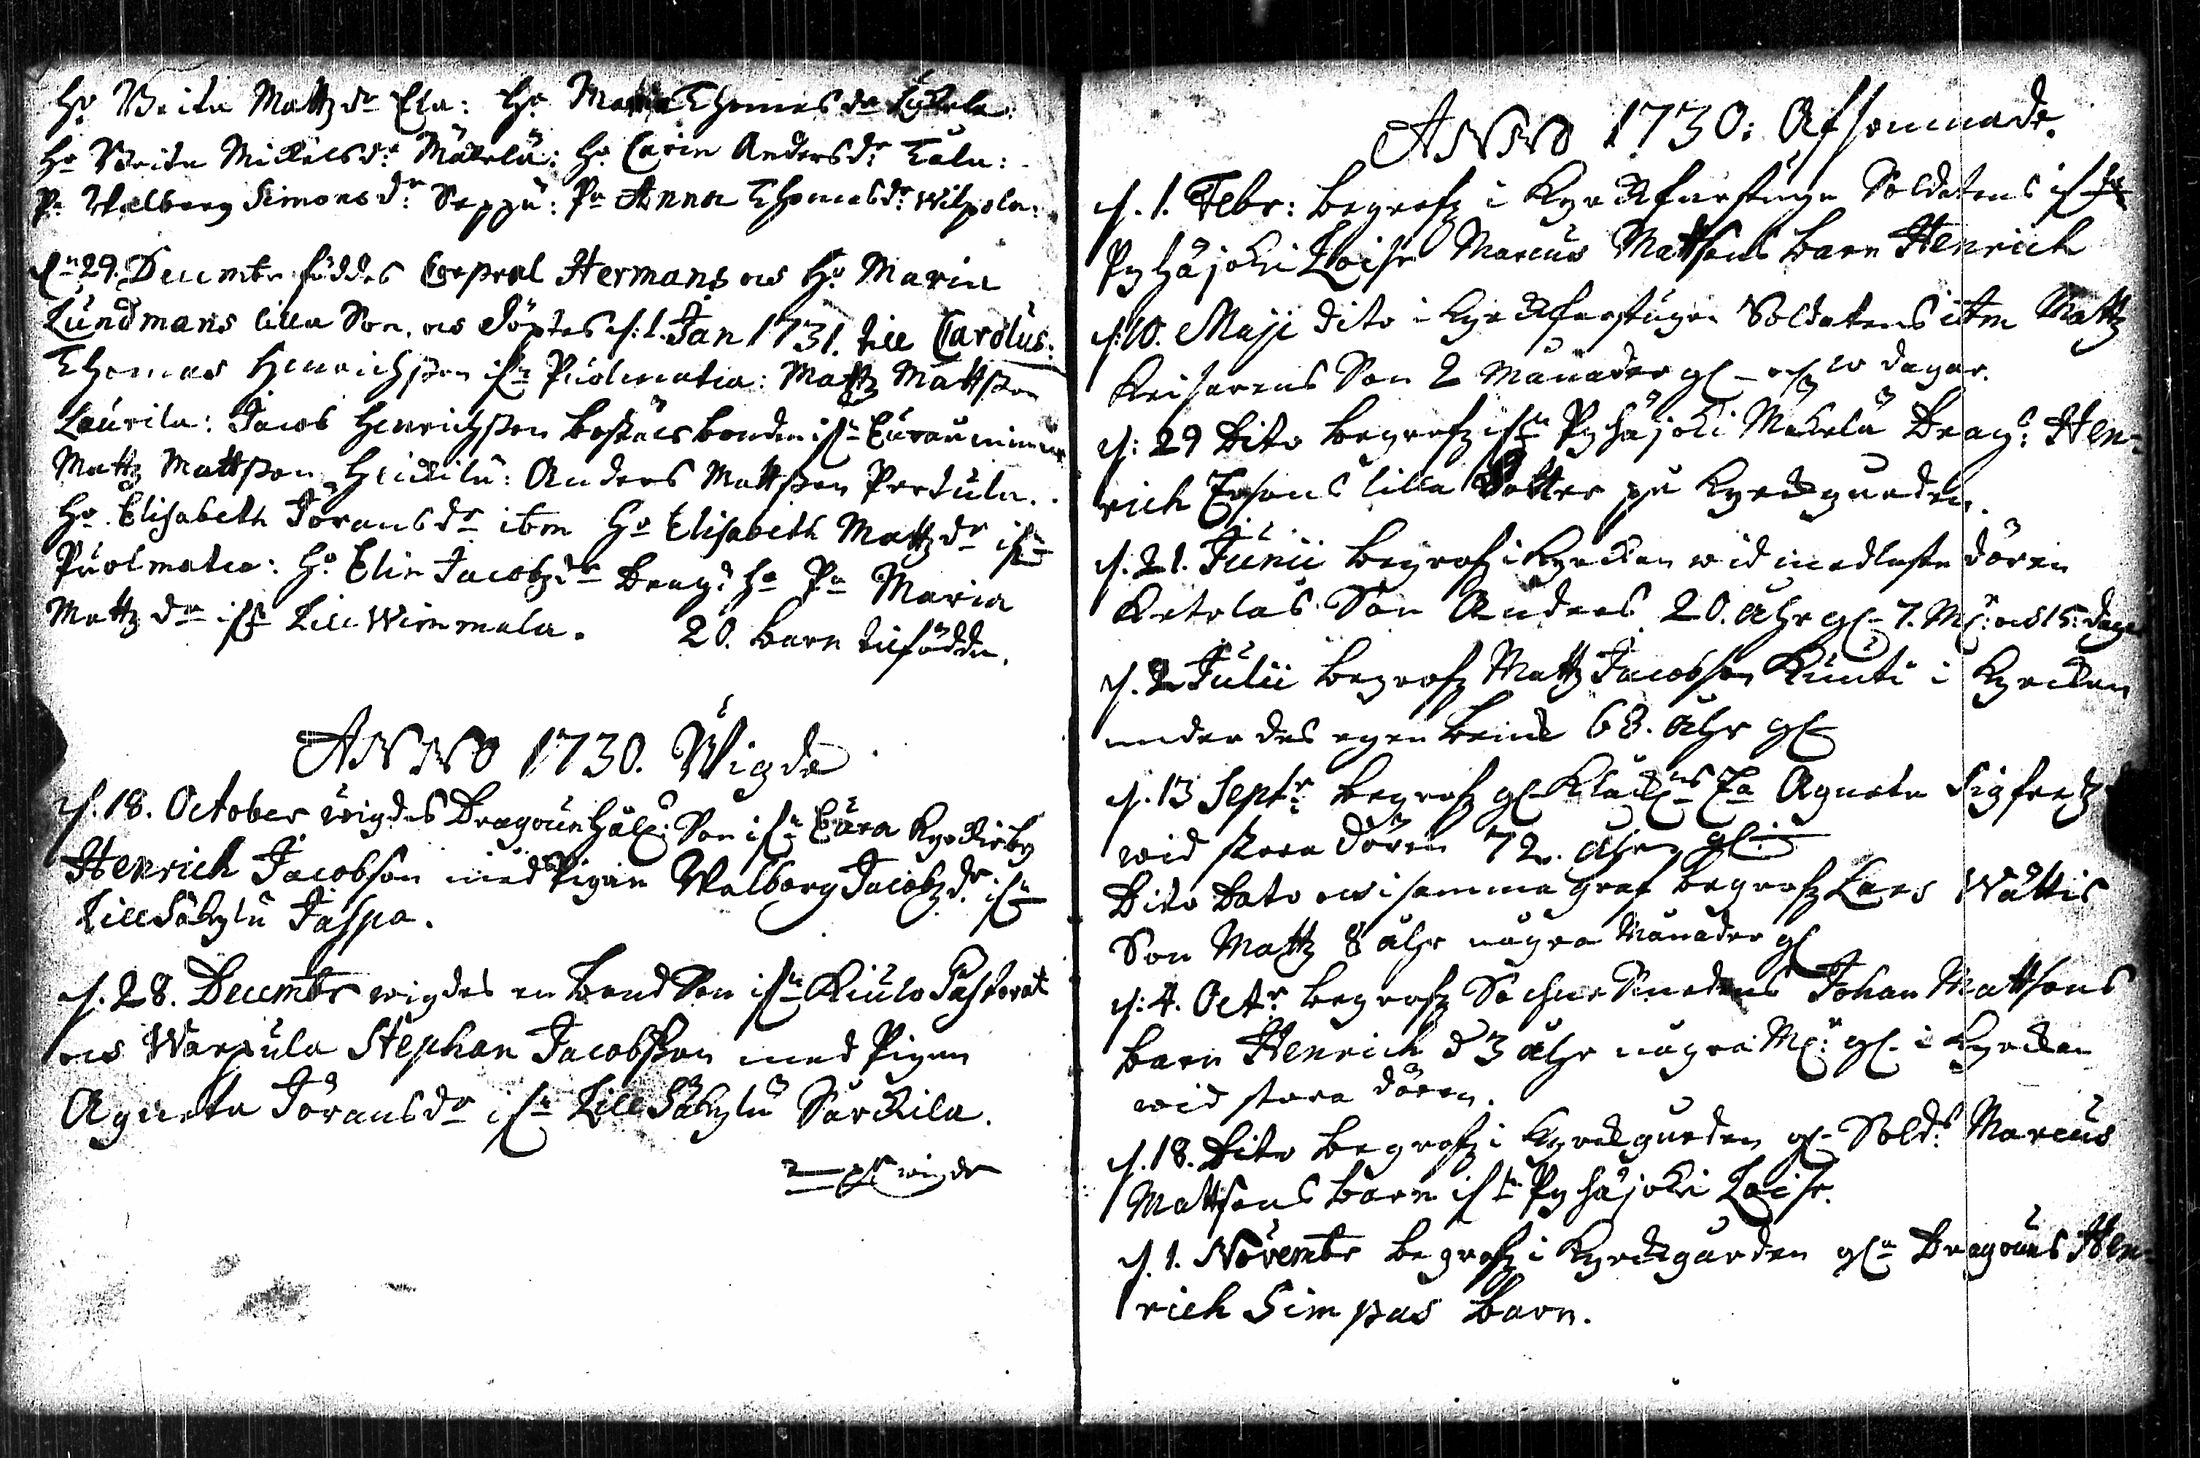 Ho Brita Mattzdr Ela: Ho Maria Thomasdr
Ho Brita Mickelsdr Mäkelä: Ho Carin Andersdr Tala:
Pa Walborg Simonsdr Seppä: Pa Anna Thomasdr Wilpola:
dn 29. Decembr föddes Corpral Hermans os Ho Maria
Lundmans lilla Son, os döptes d: 1. Jan 1731. till Carolus:
Thomas Henrichsson ifn Puolmatia: Mattz Mattsson
Laurila: Jacob Henrichsson bostäls bonden ifn Eura
Mattz Mattsson Heickilä: Anders Mattsson Pertula.
Ho Elisabeth Jöransdr ibm Ho Elisabeth Mattzdr ifn
Puolmatia: Ho Elin Jacobzdr Drag: ho Pa Maria
Mattzdr ifn Lill Wimmala. 20. barn tillfödde.
ANNO 1730. Wigde
d. 18. October wigdes Dragoun Son ifn Eura Kyrckioby
Henrich Jacobson med Pigan Walborg Jacobzdr ifn
Lill Säkylä Jaspa.
d. 28. Decembr wigdes en bond Son ifn Kiulo Pastorat
os Warpula Stephan Jacobsson med Pigan
Agneta Jöransdr ifn Lill Säkylä Särckilä.
2 pr wigde
ANNO 1730: Afsomnade.
d. 1. Febr: begrofz i Kyrckfarstugu Soldatens ifn
Pyhäjoki Loise Marcus Mattsons barn Henrich
d: 10. Maji dito i Kyrckfarstugun Soldatens ibm Mattz
Keisarens Son 2 Månader gl och 10 dagar.
d: 29 Dito begrofz ifn Pyhäjoki Mäkelä Drag: Hen-
rich Ersons lilla Dotter på Kyrckgården.
d. 21. Junii begrofz i Kyrckan wid medlaste dören
Ketolas Son Anders 20. åhr gl 7. M: os 15: dagr
d. 2 Julii begrofz Mattz Jacobson Kunti i Kyrckan
under des egen bänk 68. åhr gl
d. 13 Septr begrofz gl Klåck Ea Agneta Sigfredz
wid stora dören 72. åhr gl:
Dito Dato os i samma graf begrofz Lars Wättis
Son Mattz 8 åhr några Månader gl
d: 4. Octr begrofz Sochne Smedens Johan Mattsons
barn Henrich d 3 åhr några M: gl. i Kyrckan
wid stora dören.
d. 18. Dito begrofz i Kyrckgården gl Sold: Marcus
Mattsons barn ifn Pyhäjoki Loise.
d. 1. Novembr begrofz i Kyrckgården gl Dragouns Hen-
rich Simpas barn.